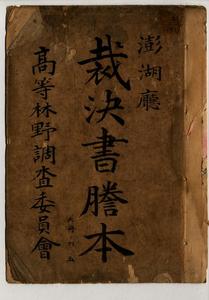 澎湖廳
裁決書謄本
高等林野調査委員會